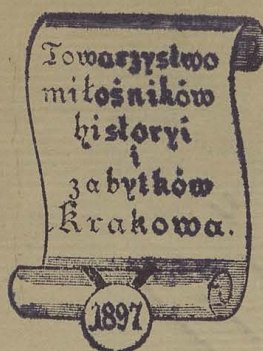 Towarzystwo
miłośników
historyi
i
zabytków
Krakowa.
1897